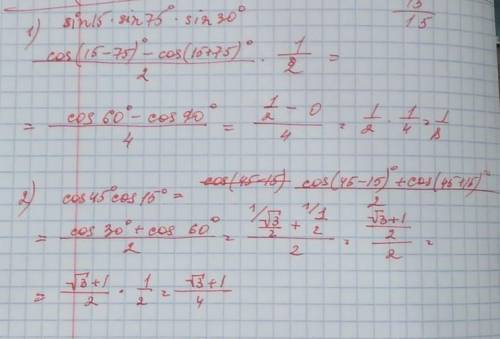 15
1) sin15 · sin75° · sin30°
(cos(15-75)° - cos(15+75)°)/2 · 1/2 =
= (cos60° - cos90°)/4 = (1/2 - 0)/4 = 1/2 · 1/4 = 1/8
2) cos45°cos15° = (cos(45-15)° + cos(45+15)°)/2
= (cos30° + cos60°)/2 = (√3/2 + 1/2)/2 = ((√3+1)/2)/2 =
= (√3+1)/2 · 1/2 = (√3+1)/4